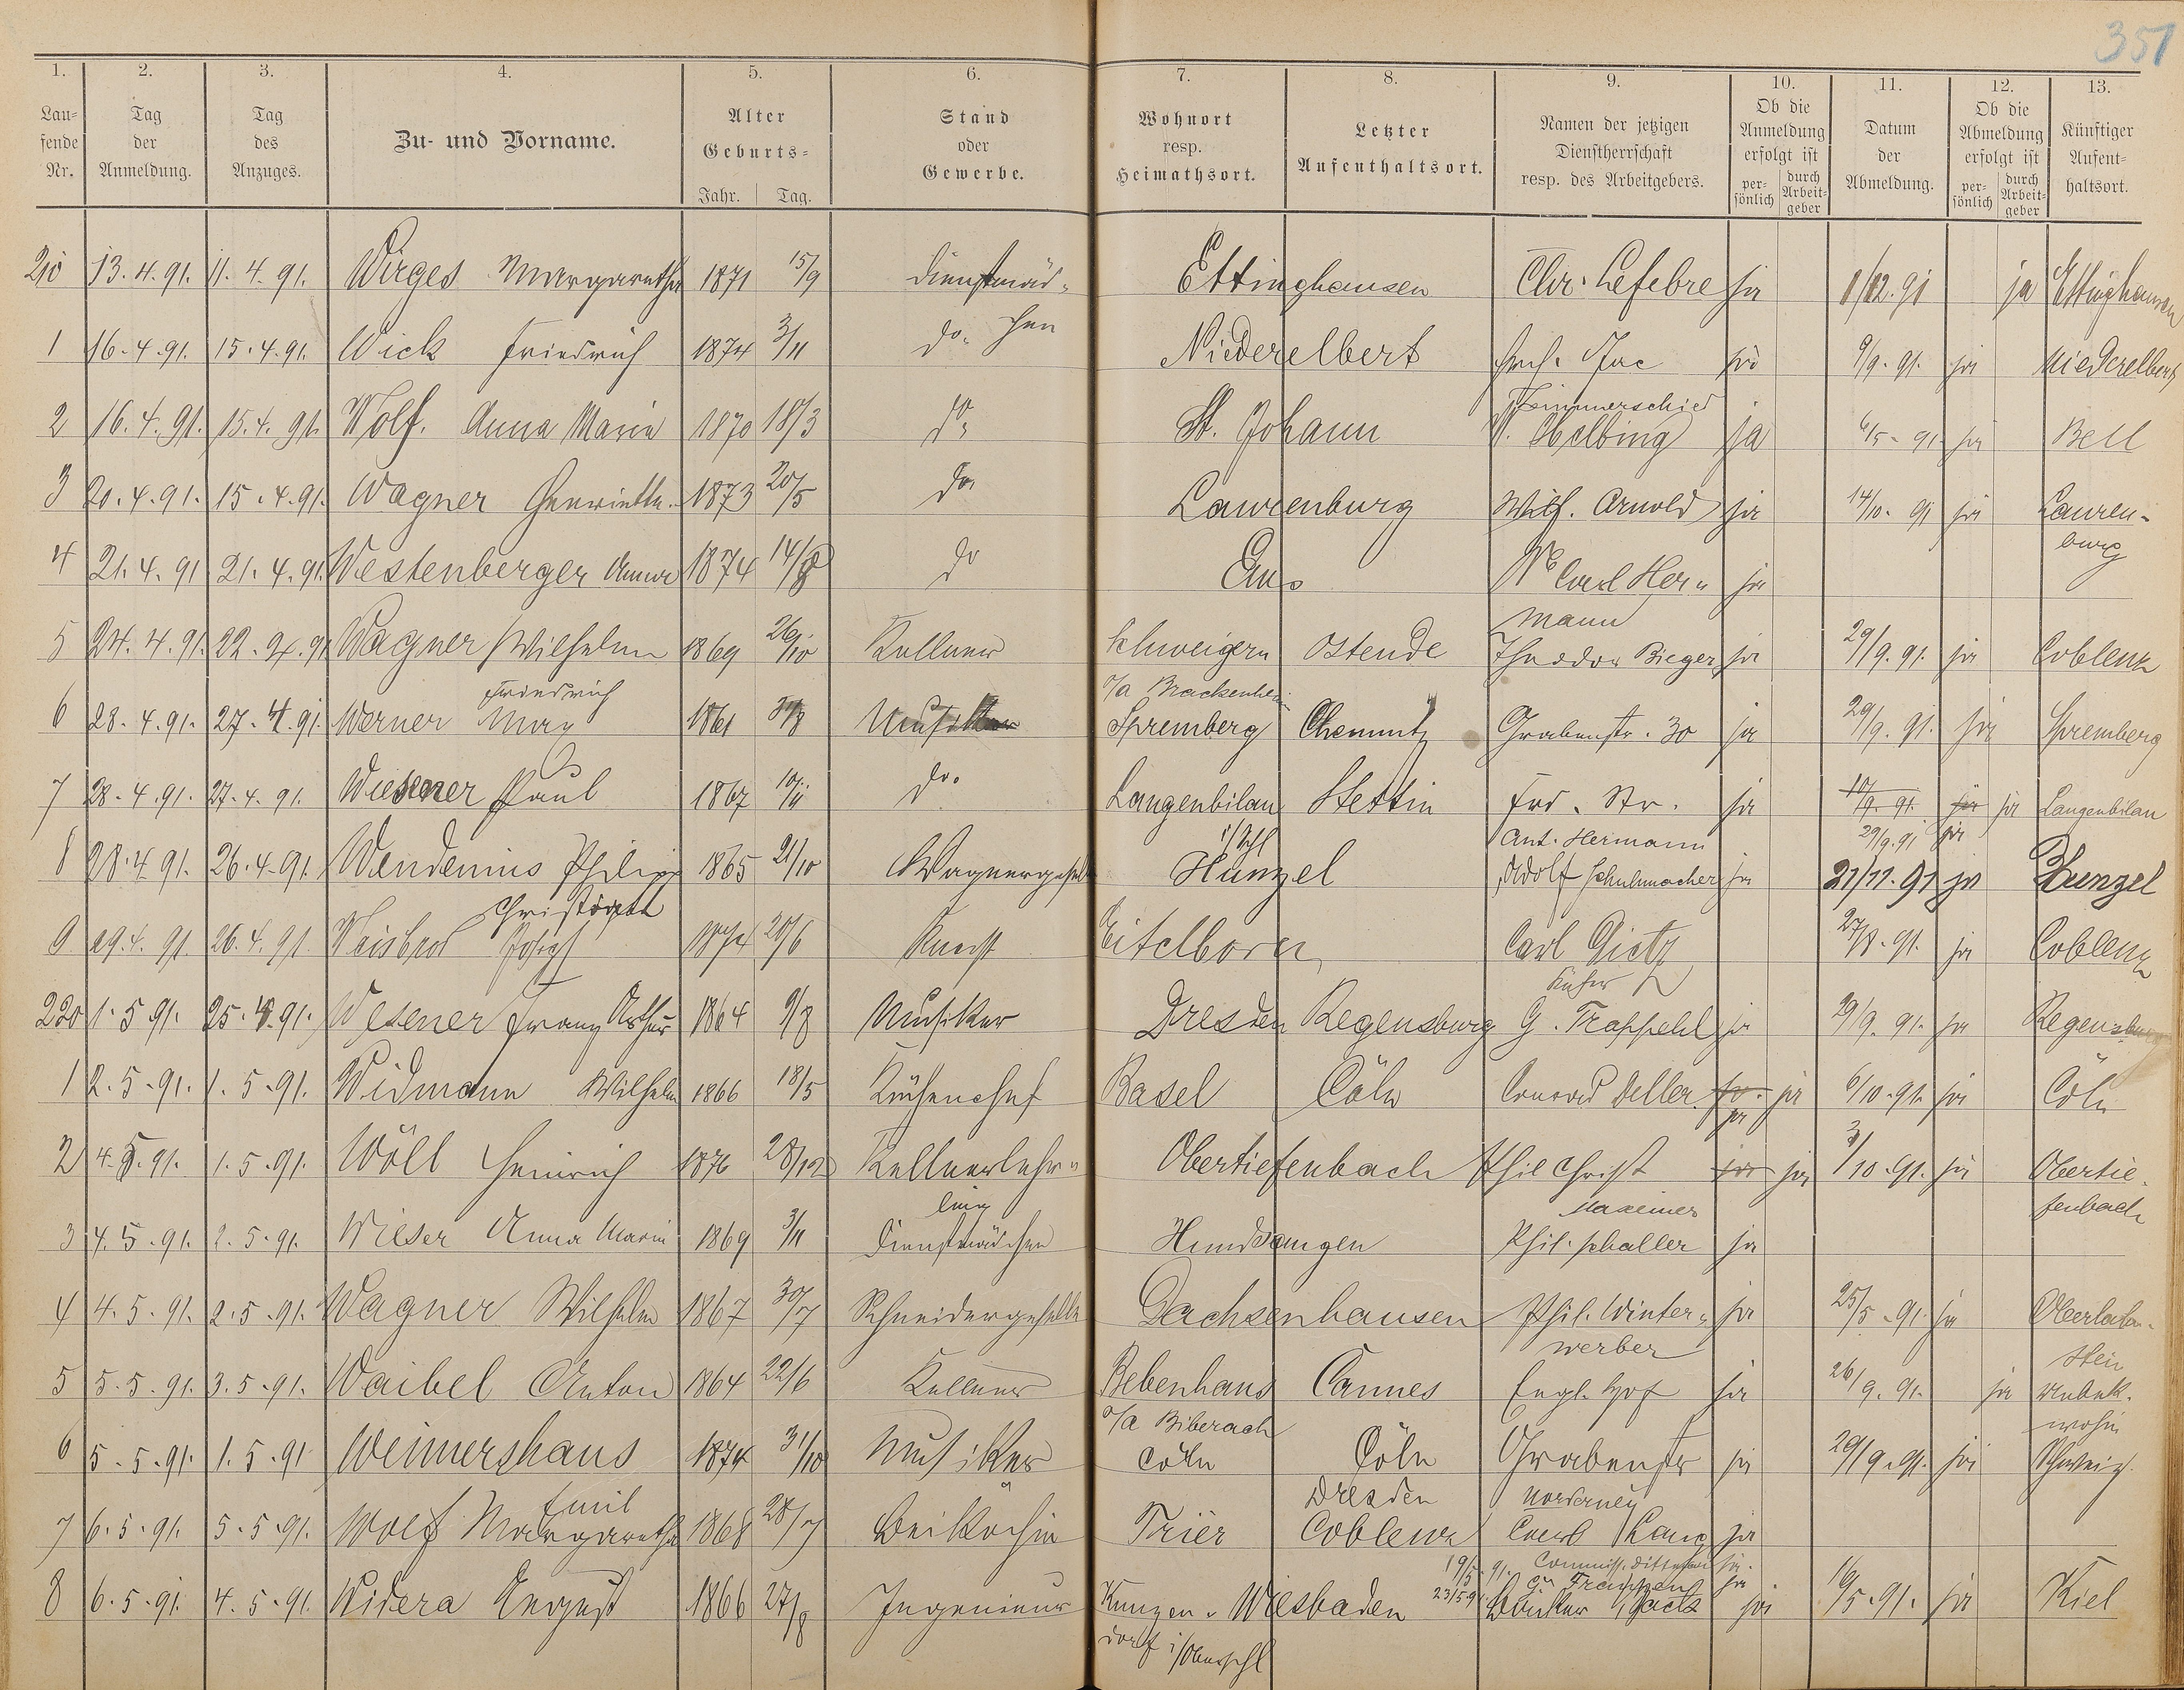 351
1. 2. 3. 4. 5. 6. 7. 8. 9. 10. 11. 12. 13.
Laufende Nr. Tag der Anmeldung. Tag des Anzuges. Zu- und Vorname. Alter Geburts- Jahr. Tag. Stand oder Gewerbe. Wohnort resp. Heimathsort. Letzter Aufenthaltsort. Namen der jetzigen Dienstherrschaft resp. des Arbeitgebers. Ob die Anmeldung erfolgt ist persönlich durch Arbeitgeber Datum der Abmeldung. Ob die Abmeldung erfolgt ist persönlich durch Arbeitgeber Künftiger Aufenthaltsort.
210 13.4.91. 11.4.91. Wirges Margaretha 1871 15/9 Dienstmäd- Ettinghausen Chr. Lefebre ja 1/12.91 ja Ettinghausen
1 16.4.91. 15.4.91. Wick Friedrich 1874 3/11 do. chen Niederelbert Jac ja 9/9.91. ja Niederelbert
Zimmerschied
2 16.4.91. 15.4.91. Wolf. Anna Maria 1870 18/3 do St. Johann W. Helbing ja 6/5.91 ja Bell
3 20.4.91. 15.4.91. Wagner Henriette 1873 20/5 do. Laurenburg Wilh. Arnold ja 14/10.91 ja Lauren-
burg
4 21.4.91 21.4.91. Westenberger Anna 1874 14/8 do Ems We Carl Her- ja
mann
5 24.4.91. 22.4.91 Wagner Wilhelm 1869 26/10 Kellner Schweigern Ostende Theodor Bieger ja 29/9.91. ja Coblenz
Friedrich o/a Brackenheim
6 28.4.91. 27.4.91. Werner Max 1861 Musiker Spremberg Chemnitz Grabenstr. 30 ja 29/9.91. ja Spremberg
7 28.4.91. 27.4.91. Wiesner Paul 1867 10/11 do. Langenbilau Stettin Frd. Str. ja 10/9.91. ja ja Langenbilau
i/Schl Ant. Hermann 29/9.91 ja
8 28.4.91. 26.4.91. Wendenius Philipp 1865 21/10 Wagnergesell Hunzel Adolf Schuhmacher ja 21/11.91 ja Hunzel
Christ
9 29.4.91. 26.4.91. Weisbrod Josef 1874 20/6 Knecht Eitelborn Carl Dietz 27/8.91. ja Coblenz
Küfer
220 1.5.91. 25.4.91. Wesener Franz Arthur 1864 9/8 Musiker Dresden Regensburg G. Trappehl ja 29/9.91. ja Regensburg
1 2.5.91. 1.5.91. Widmann Wilhelm 1866 18/5 Küchenchef Basel Cöln Conrad Deller ja ja 6/10.91. ja Cöln
2 4.5.91. 1.5.91. Wöll Heinrich 1876 28/12 Kellnerlehr- Obertiefenbach Phil Christ ja ja 3/10.91. ja Obertie-
ling Maxeiner fenbach
3 4.5.91. 2.5.91. Wieser Anna Maria 1869 3/11 Dienstmädchen Hundsangen Phil. Schaller ja
4 4.5.91. 2.5.91. Wagner Wilhelm 1867 30/7 Schneidergeselle Dachsenhausen Phil. Winter- ja 25/5.91. ja Oberlahn-
werber stein
5 5.5.91. 3.5.91. Waibel Anton 1864 22/6 Kellner Bebenhaus Cannes Engl. Hof ja 26/9.91. ja unbek.
o/a Biberach wohin
6 5.5.91. 1.5.91 Weimershaus 1874 31/10 Musiker Cöln Cöln Grabenstr ja 29/9.91. ja Schweiz.
Emil Dresden Norderney
7 6.5.91. 5.5.91. Wolf Margaretha 1868 28/7 Beiköchin Trier Coblenz Carl Lang ja
19/5.91. ja.
23/5.91 ja
8 6.5.91. 4.5.91. Widera August 1866 27/8 Ingenieur Kunzen- Wiesbaden Bäcker ja 16/5.91. ja Kiel
dorf i/Oberschl